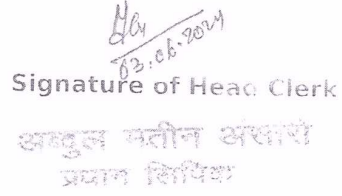 03.06.2024
Signature of Head Clerk
अब्दुल मतीन अंसारी
प्रधान लिपिक